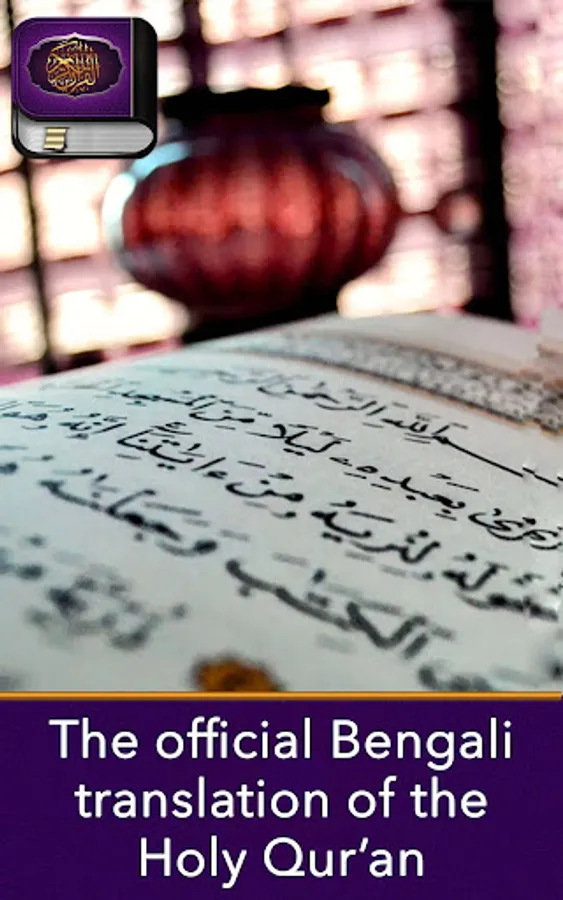 بِسْمِ اللَّهِ الرَّحْمَٰنِ
بِعَبْدِهِ لَيْلًا مِّنَ الْمَسْجِدِ
حَوْلَهُ لِنُرِيَهُ مِنْ ءَايَٰتِنَا إِنَّهُ هُوَ
الْكِتَٰبَ وَجَعَلْنَٰهُ
The official Bengali
translation of the
Holy Qur’an